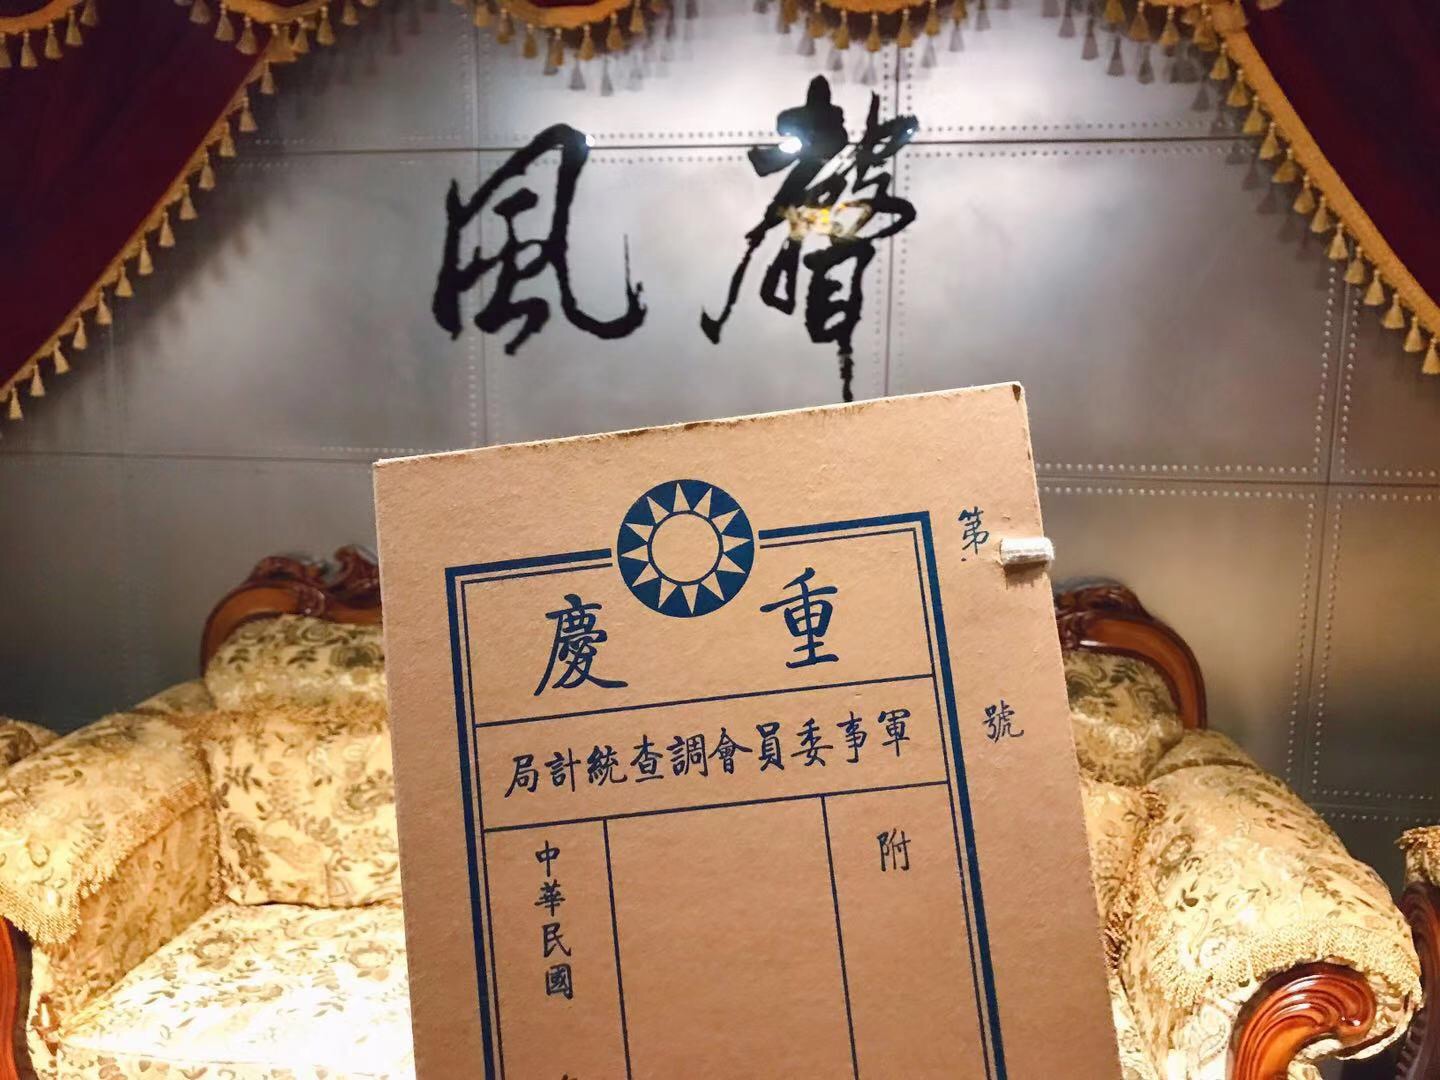 風聲
第 號
重慶
軍事委員會調查統計局
附
中華民國